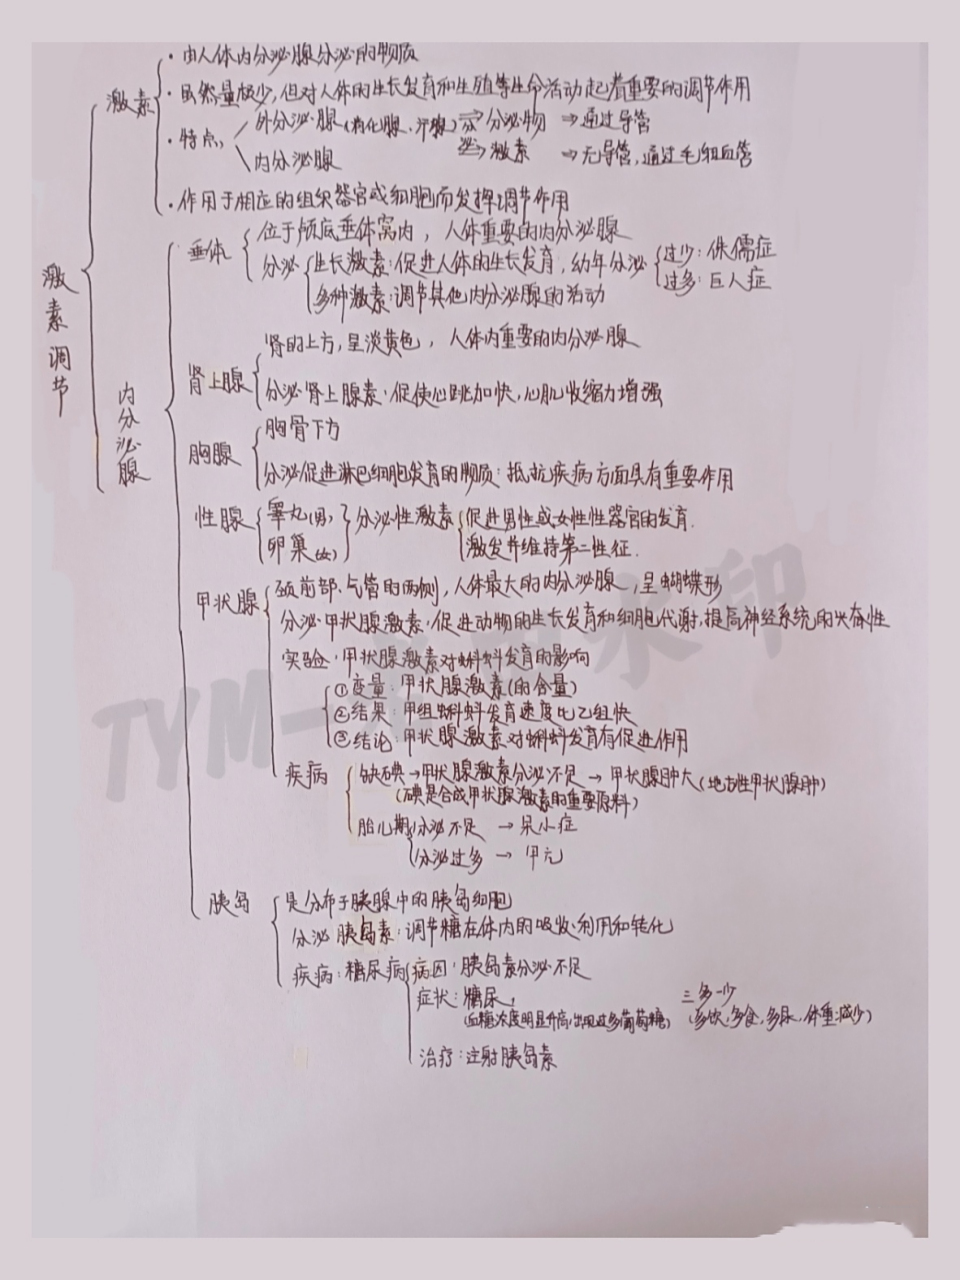 激素调节
激素
· 由人体内分泌腺分泌的物质
· 虽然量极少，但对人体的生长发育和生殖等生命活动起着重要的调节作用
· 特点
外分泌腺（消化腺、汗腺）分泌 ⇒ 分泌物 ⇒ 通过导管
内分泌腺 ⇒ 激素 ⇒ 无导管，通过毛细血管
· 作用于相应的组织器官或细胞而发挥调节作用
内分泌腺
垂体
位于颅底垂体窝内，人体重要的内分泌腺
分泌
生长激素：促进人体的生长发育，幼年分泌
过少：侏儒症
过多：巨人症
多种激素：调节其他内分泌腺的活动
肾上腺
肾的上方，呈淡黄色，人体内重要的内分泌腺
分泌肾上腺素：促使心跳加快，心肌收缩力增强
胸腺
胸骨下方
分泌促进淋巴细胞发育的物质：抵抗疾病方面具有重要作用
性腺
睾丸（男）
卵巢（女）
分泌性激素
促进男性或女性性器官的发育.
激发并维持第二性征.
甲状腺
颈前部、气管的两侧，人体最大的内分泌腺，呈蝴蝶形
分泌甲状腺激素：促进动物的生长发育和细胞代谢，提高神经系统的兴奋性
实验：甲状腺激素对蝌蚪发育的影响
①变量：甲状腺激素（的含量）
②结果：甲组蝌蚪发育速度比乙组快
③结论：甲状腺激素对蝌蚪发育有促进作用
疾病
缺碘→甲状腺激素分泌不足→甲状腺肿大（地方性甲状腺肿）
（碘是合成甲状腺激素的重要原料）
胎儿期
分泌不足 → 呆小症
分泌过多 → 甲亢
胰岛
是分布于胰腺中的胰岛细胞
分泌胰岛素：调节糖在体内的吸收、利用和转化
疾病：糖尿病
病因：胰岛素分泌不足
症状：糖尿， 三多一少
（血糖浓度明显升高，出现过多葡萄糖） （多饮，多食，多尿，体重减少）
治疗：注射胰岛素
水印